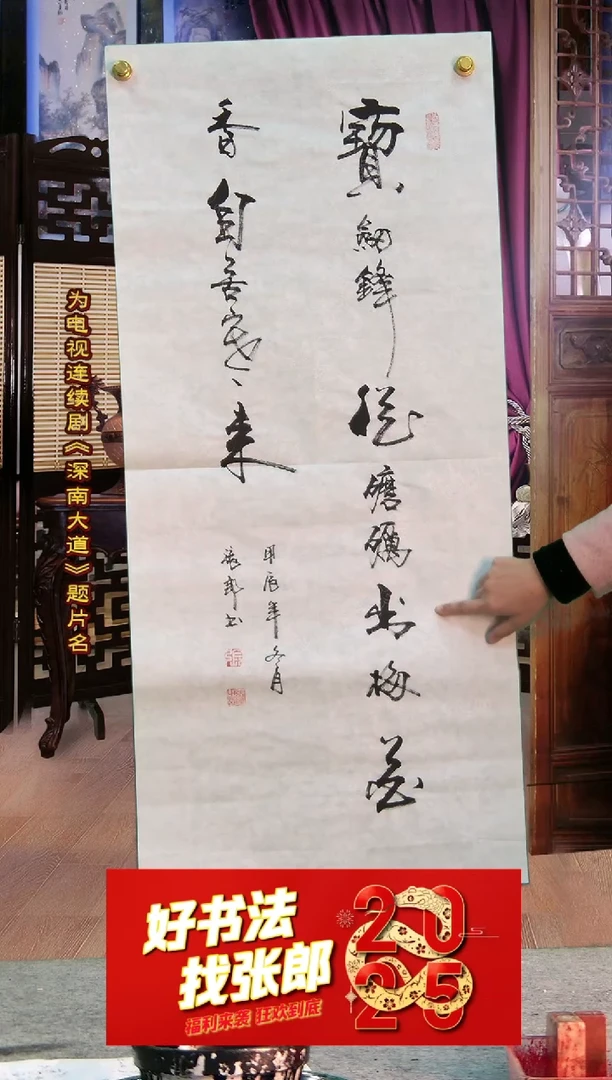 寶劍鋒從磨礪出梅花
香自苦寒來
甲辰年冬月
張郎書
为电视连续剧《深南大道》题片名
好书法
找张郎
福利来袭 狂欢到底
2025